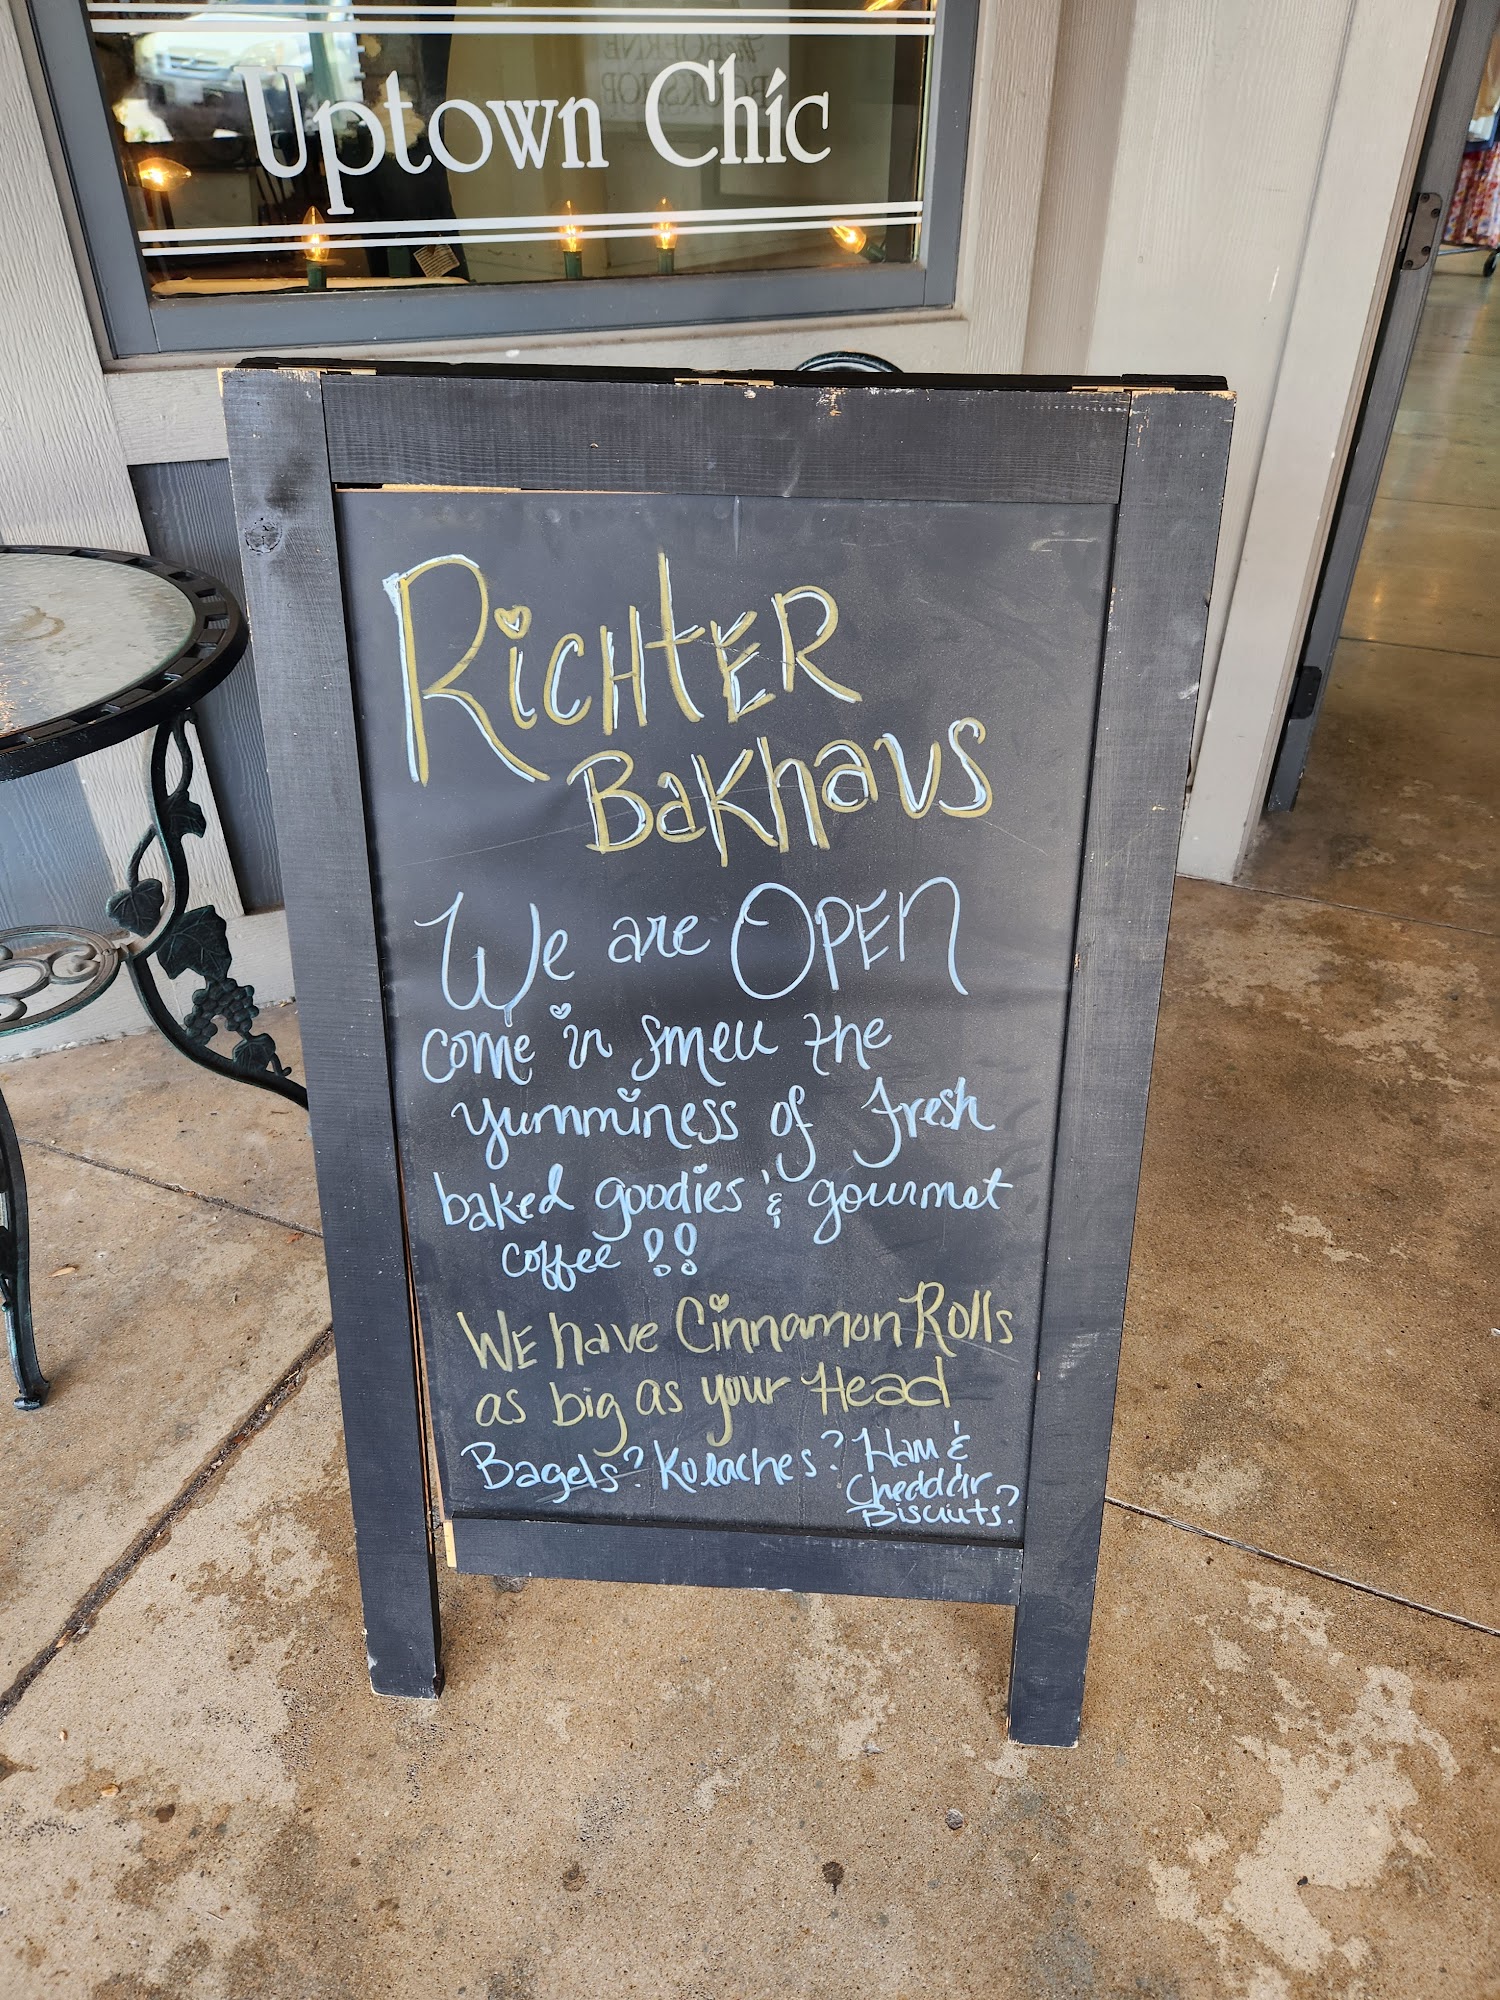 Uptown Chic
The BOERNE
BOOKSHOP
RICHTER
BAKHAUS
We are OPEN
come in smell the
yumminess of fresh
baked goodies & gourmet
coffee !!
WE have Cinnamon Rolls
as big as your Head
Bagels? Kolaches? Ham &
Cheddar
Biscuits?